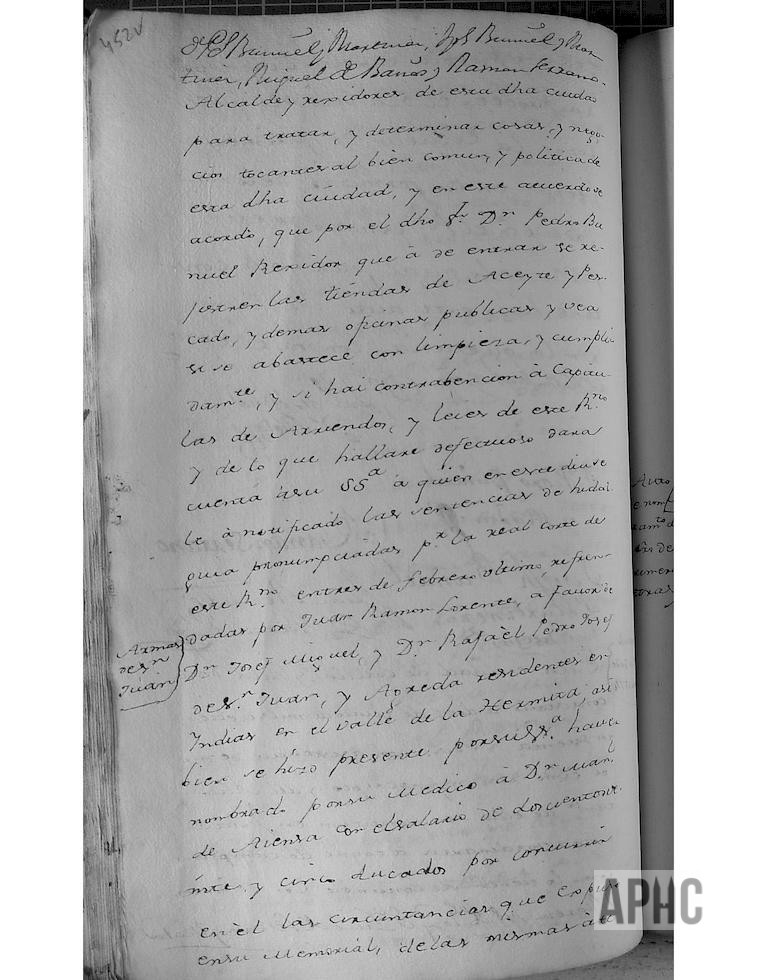 452v
Buñuel y Martinez, Jph Buñuel y Mar-
tinez, Miguel de Baños y Ramon Serrano
Alcalde y rexidores de esta dha ciudad
para tratar, y determinar cosas, y nego-
cios tocantes al bien comun, y politica de
esta dha ciudad, y en este acuerdo se
acordò, que por el dho Sr. Dn. Pedro Bu
nuel Rexidor que à de entrar se re-
jistren las tiendas de Aceyte y Pes-
cado, y demas oficinas publicas y vea
si se abastece con limpieza, y cumpli
damte, y si hai contrabencion à Capitu-
las de Arriendos, y leies de este Rno
y de lo que hallare defectuoso dara
cuenta à su SSa à quien en este dia se
le à notificado las sentencias de hidal
guia pronunciadas pr la real corte de
este Rno en tres de febrero ultimo, refren-
dadas por Juan Ramon Lorente, a favor de
Dn Josef Miguel, y Dn Rafaèl Pedro Josef
de Sn Juan, y Agreda residentes en
Indias en el valle de la Hermita, asi
bien se hizo presente por su SSa haver
nombrado por su Medico à Dn Manl
de Atienza con el salario de doscientos
inte, y cinco ducados por concurrir
en èl las circuntancias que expuso
en su Memorial, de las mismas à
Armas
de Sn
Juan
Auto